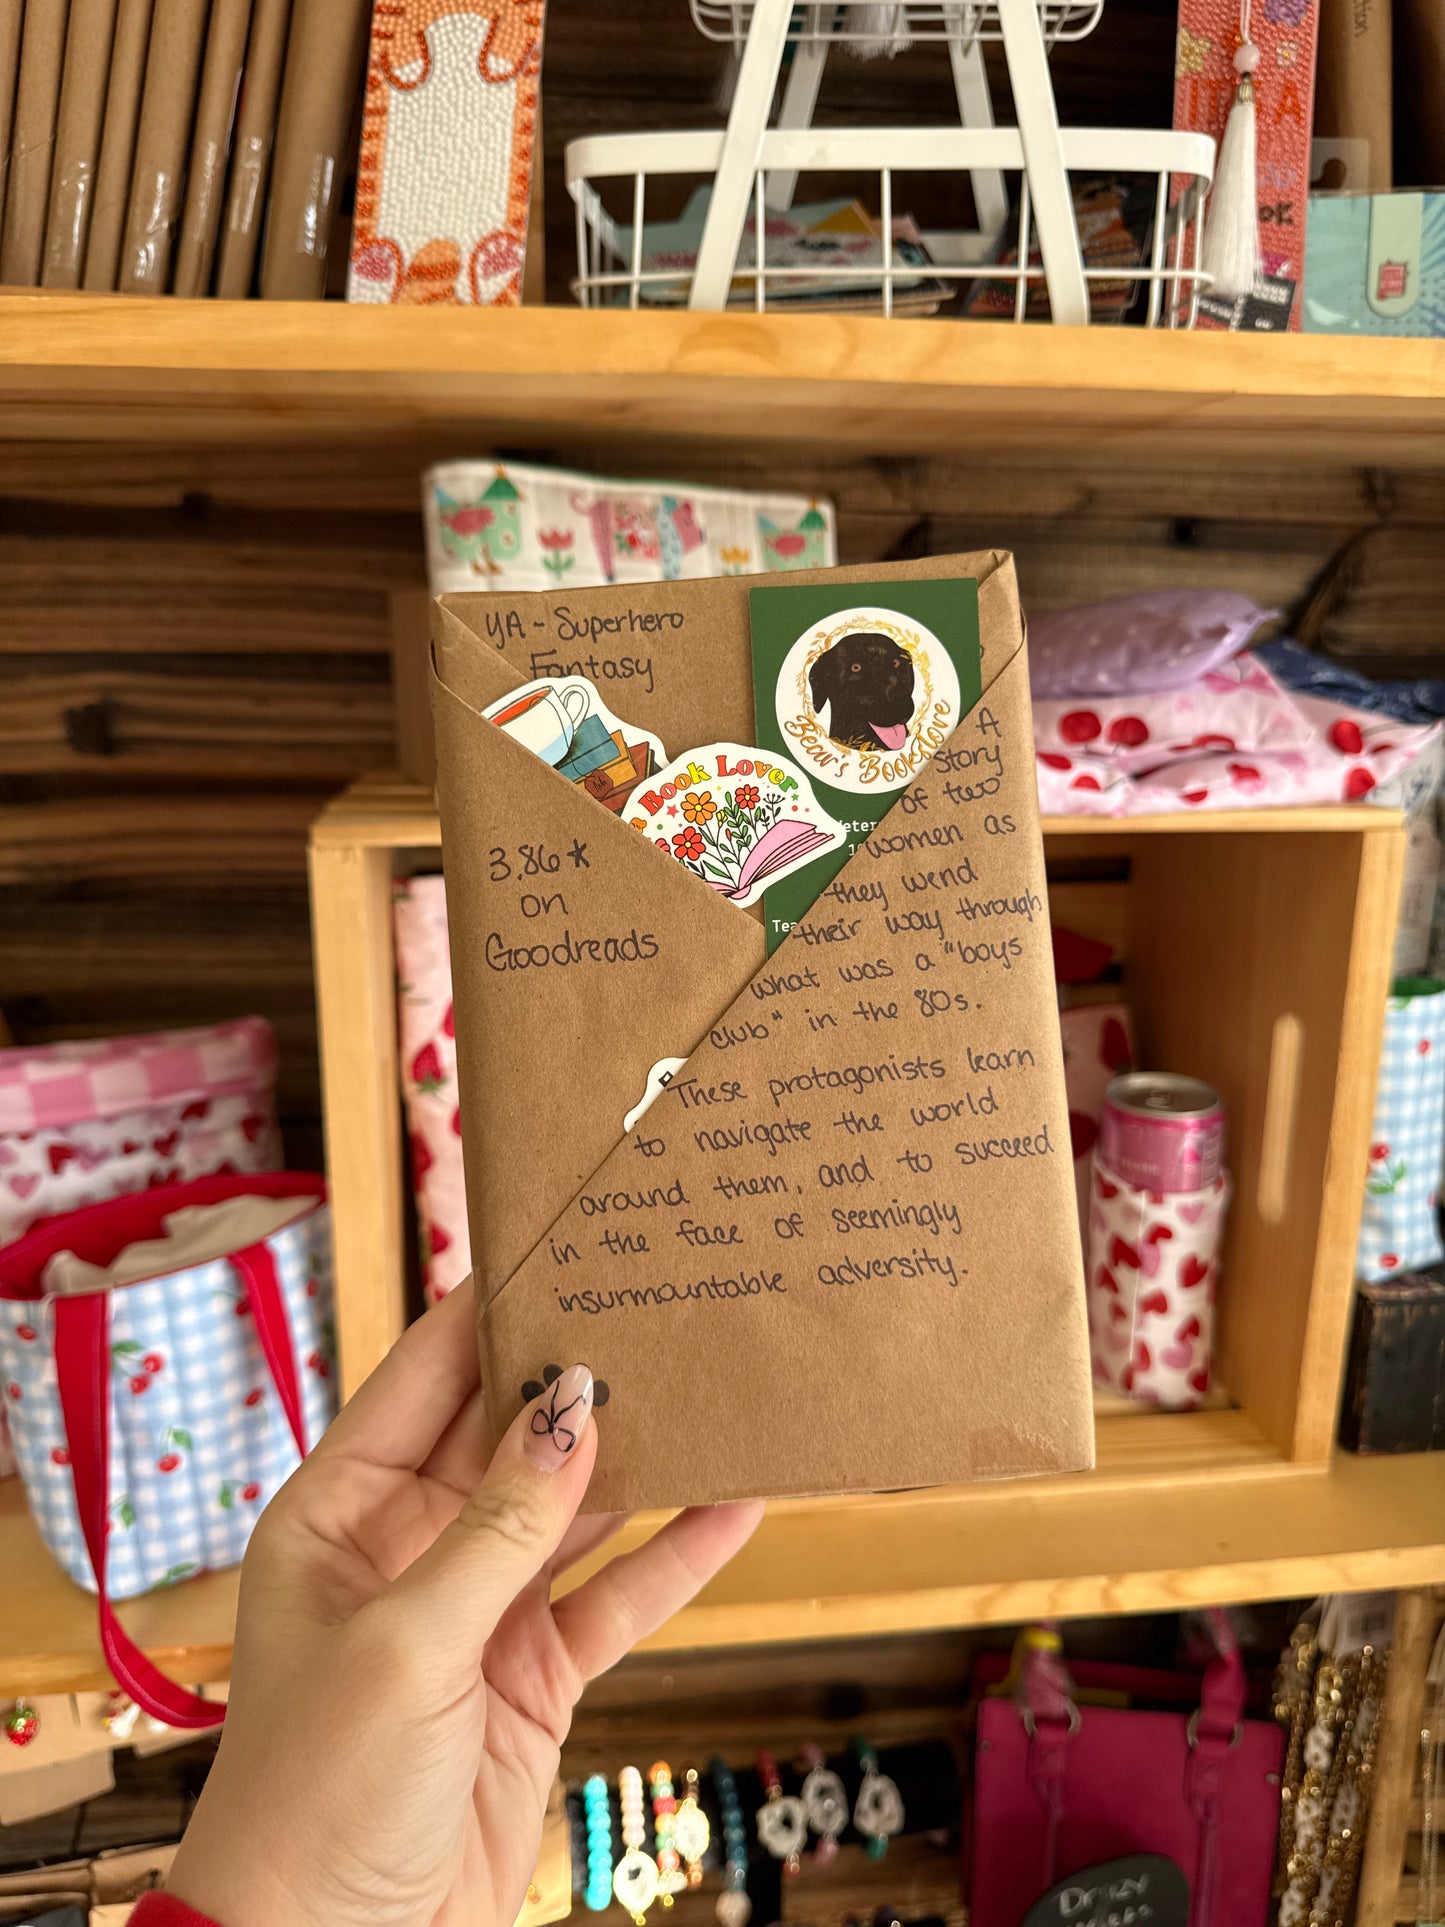 YA - Superhero
Fantasy
Bear's Bookstore
Book Lover
3.86★
on
Goodreads
A
story
of two
women as
they wend
their way through
what was a "boys
club" in the 80s.
These protagonists learn
to navigate the world
around them, and to succeed
in the face of seemingly
insurmountable adversity.